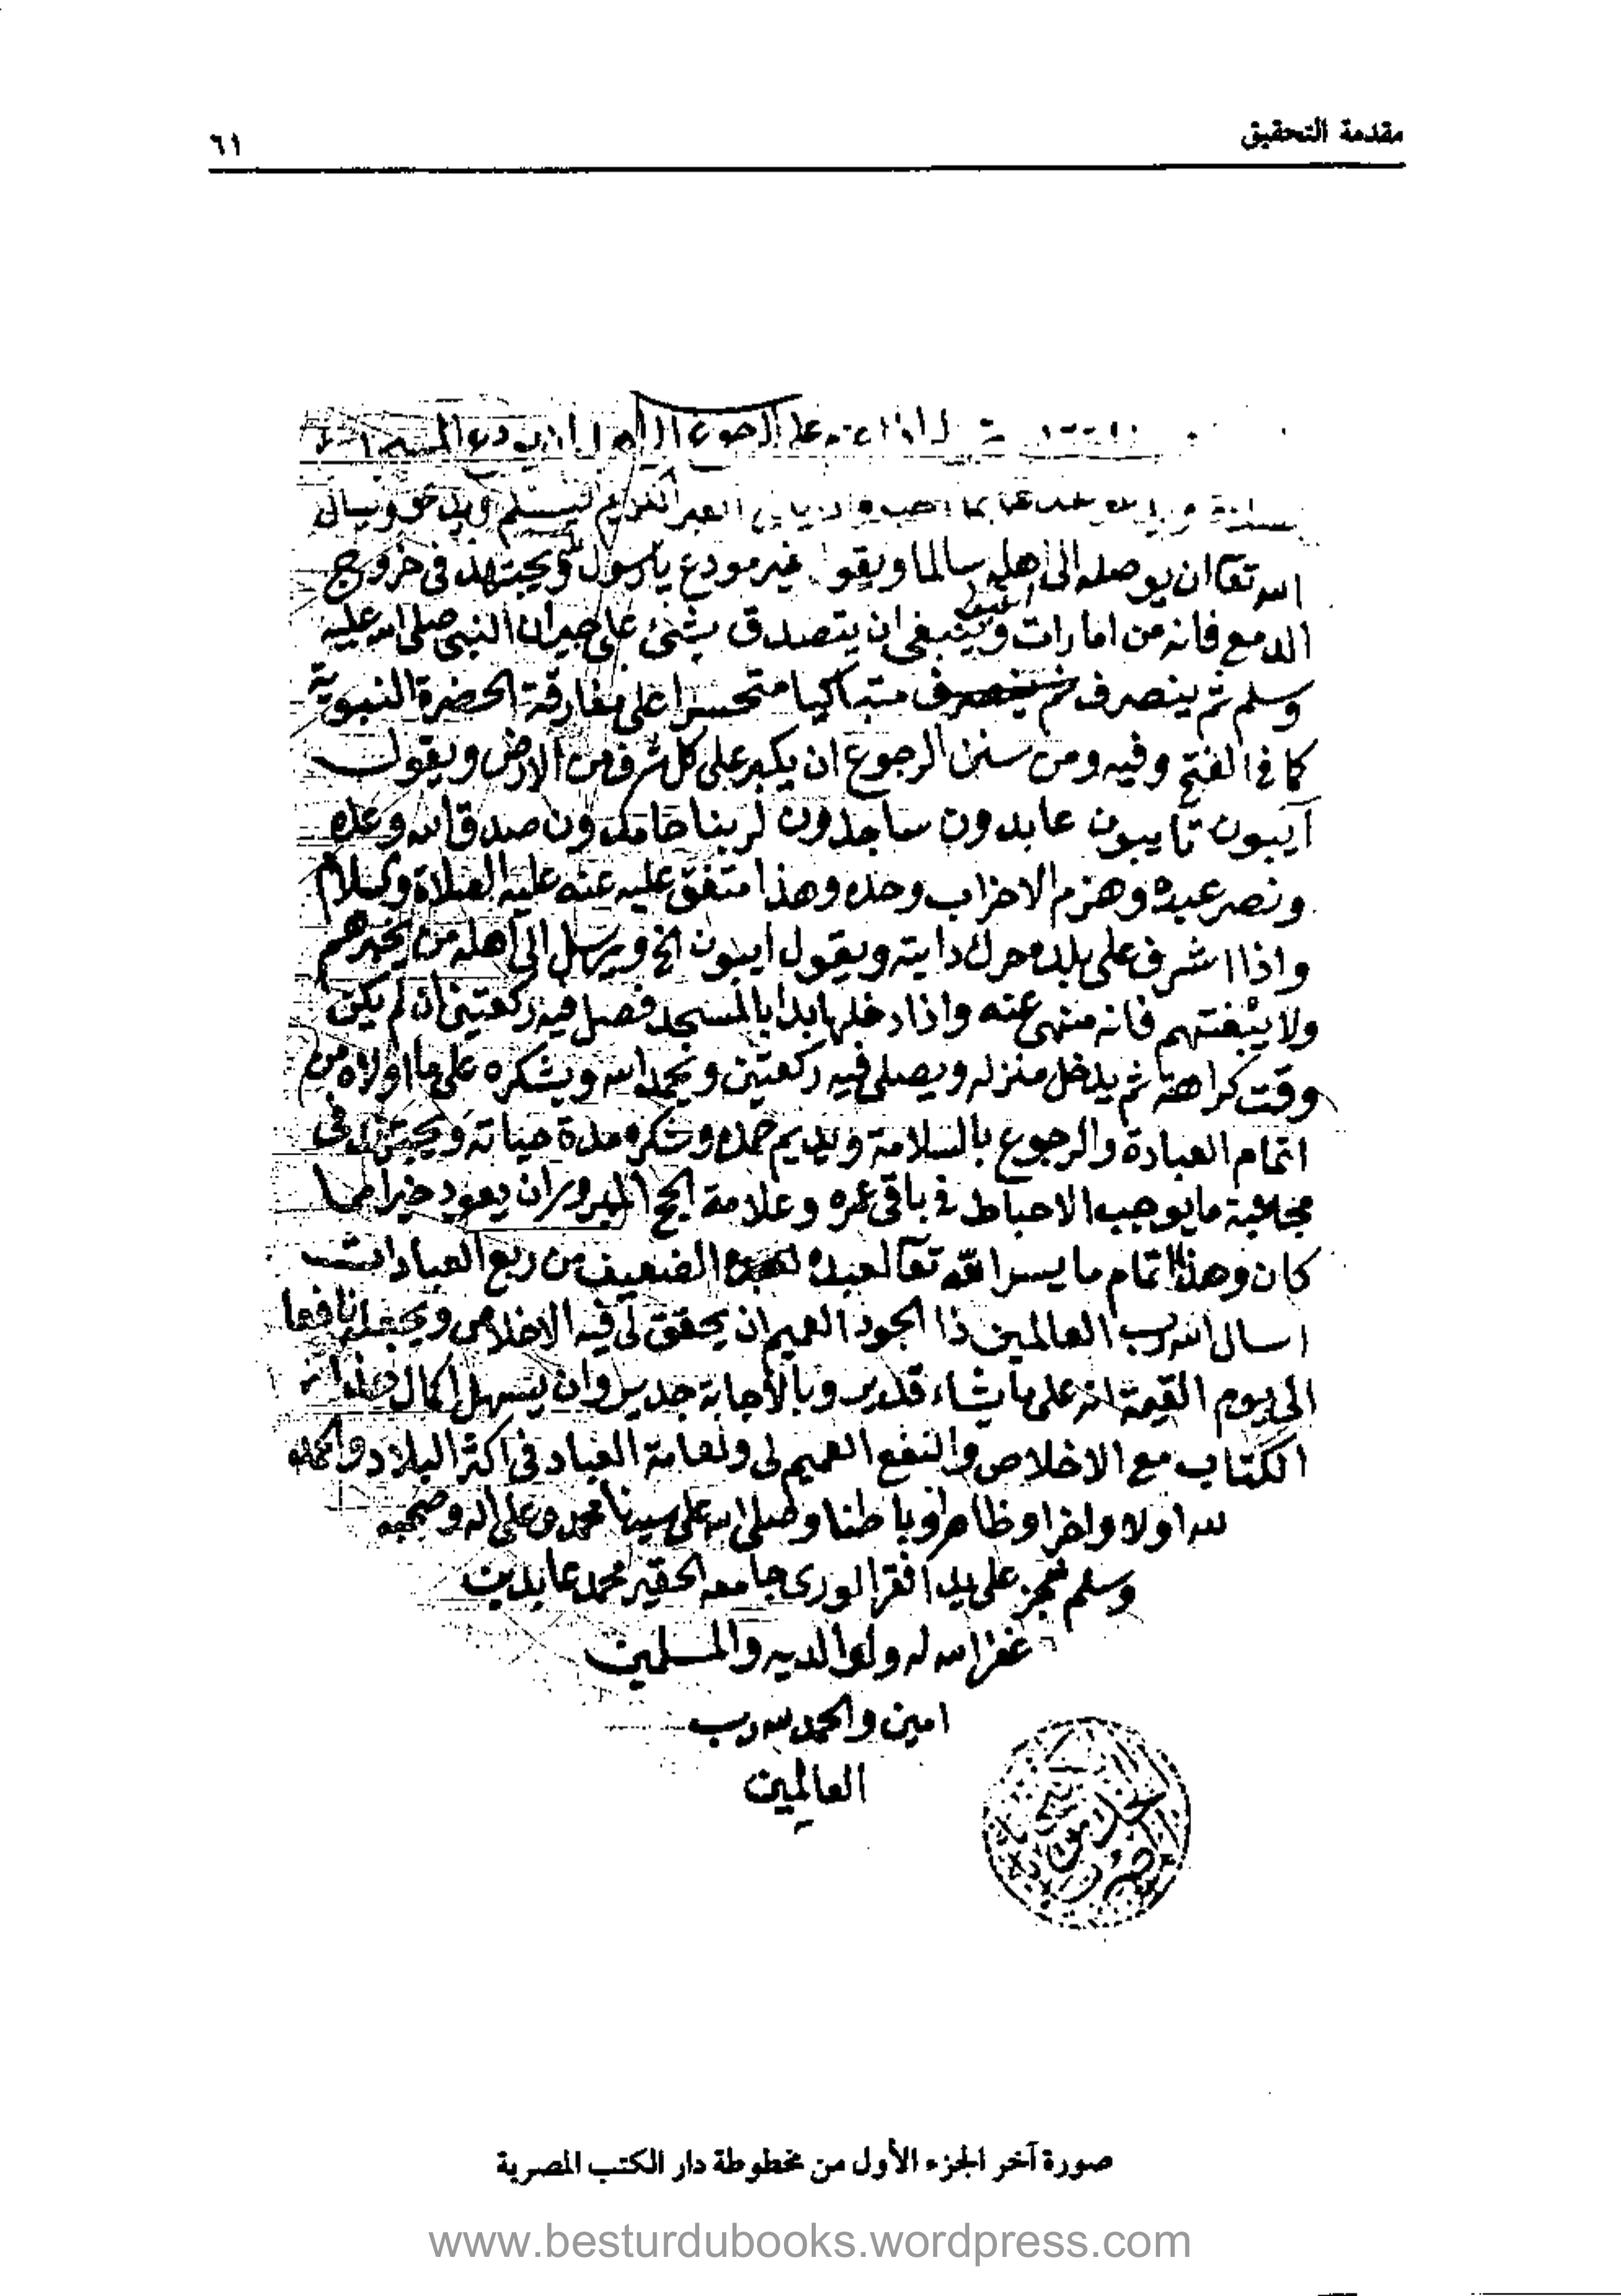 مقدمة التحقيق
٦١
على الرجوع الى
القبر الكريم ليسلم ويدعو ويسال
الله تعا ان يوصله الى اهله سالما ويقول غير مودع يا رسول ويجتهد في خروج
الدمع فانه من امارات وينبغي ان يتصدق بشئ على جيران النبي صلى الله عليه
وسلم ثم ينصرف متباكيا متحسرا على مفارقة الحضرة النبوية
كما في الفتح وفيه ومن سنن الرجوع ان يكبر على كل شرف من الارض ويقول
آيبون تايبون عابدون ساجدون لربنا حامدون صدق الله وعده
ونصر عبده وهزم الاحزاب وحده وهذا متفق عليه عنه عليه الصلاة والسلام
واذا اشرف على بلده حرك دابته ويقول ايبون الخ ويرسل الى اهله من يخبرهم
ولا يبغتهم فانه منهى عنه واذا دخلها بدا بالمسجد فصل فيه ركعتين ان لم يكن
وقت كراهة ثم يدخل منزله ويصلى فيه ركعتين ويحمد الله ويشكره على ما اولاه من
اتمام العبادة والرجوع بالسلامة ويديم حمده وشكره مدة حياته ويجتهد في
مجانبة ما يوجب الاحباط في باقى عمره وعلامة الحج المبرور ان يعود خيرا مما
كان وهذا اتمام ما يسر الله تعا لعبده الضعيف من ربع العبادات
اسال الله رب العالمين ذا الجود العميم ان يحقق لى فيه الاخلاص ويجعله نافعا
الى يوم القيمة انه على ما يشاء قدير وبالأجابة جدير وان يسهل اكمال هذا
الكتاب مع الاخلاص والنفع العميم لى ولعامة العباد في اكثر البلاد والحمد
لله اولا واخرا وظاهرا وباطنا وصلى الله على سيدنا محمد وعلى اله وصحبه
وسلم نجز على يد افقر الورى جامعه الحقير محمد عابدين
غفر الله له ولوالديه والمسلمين
امين والحمد لله رب
العالمين
صورة آخر الجزء الأول من مخطوطة دار الكتب المصرية
www.besturdubooks.wordpress.com